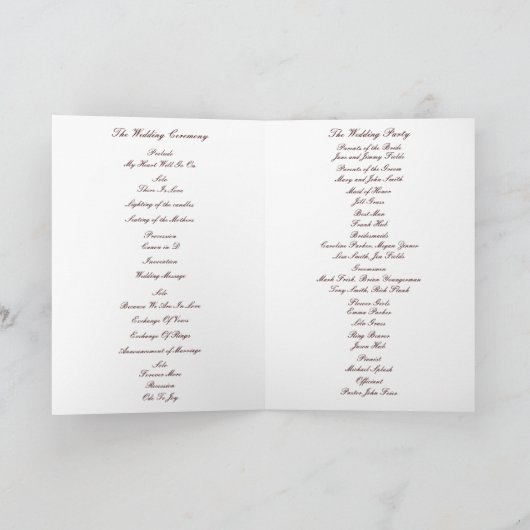 The Wedding Ceremony
Prelude
My Heart Will Go On
Solo
There Is Love
Lighting of the candles
Seating of the Mothers
Procession
Canon in D
Invocation
Wedding Message
Solo
Because We Are In Love
Exchange Of Vows
Exchange Of Rings
Announcement of Marriage
Solo
Forever More
Recession
Ode To Joy
The Wedding Party
Parents of the Bride
Jane and Jimmy Fields
Parents of the Groom
Mary and John Smith
Maid of Honor
Jill Grass
Best Man
Frank Hub
Bridesmaids
Caroline Parker, Megan Zinner
Lisa Smith, Jen Fields
Groomsmen
Mark Fresh, Brian Youngerman
Tony Smith, Rick Flank
Flower Girls
Emma Parker
Lila Grass
Ring Bearer
Jason Hub
Pianist
Michael Splash
Officiant
Pastor John Feier